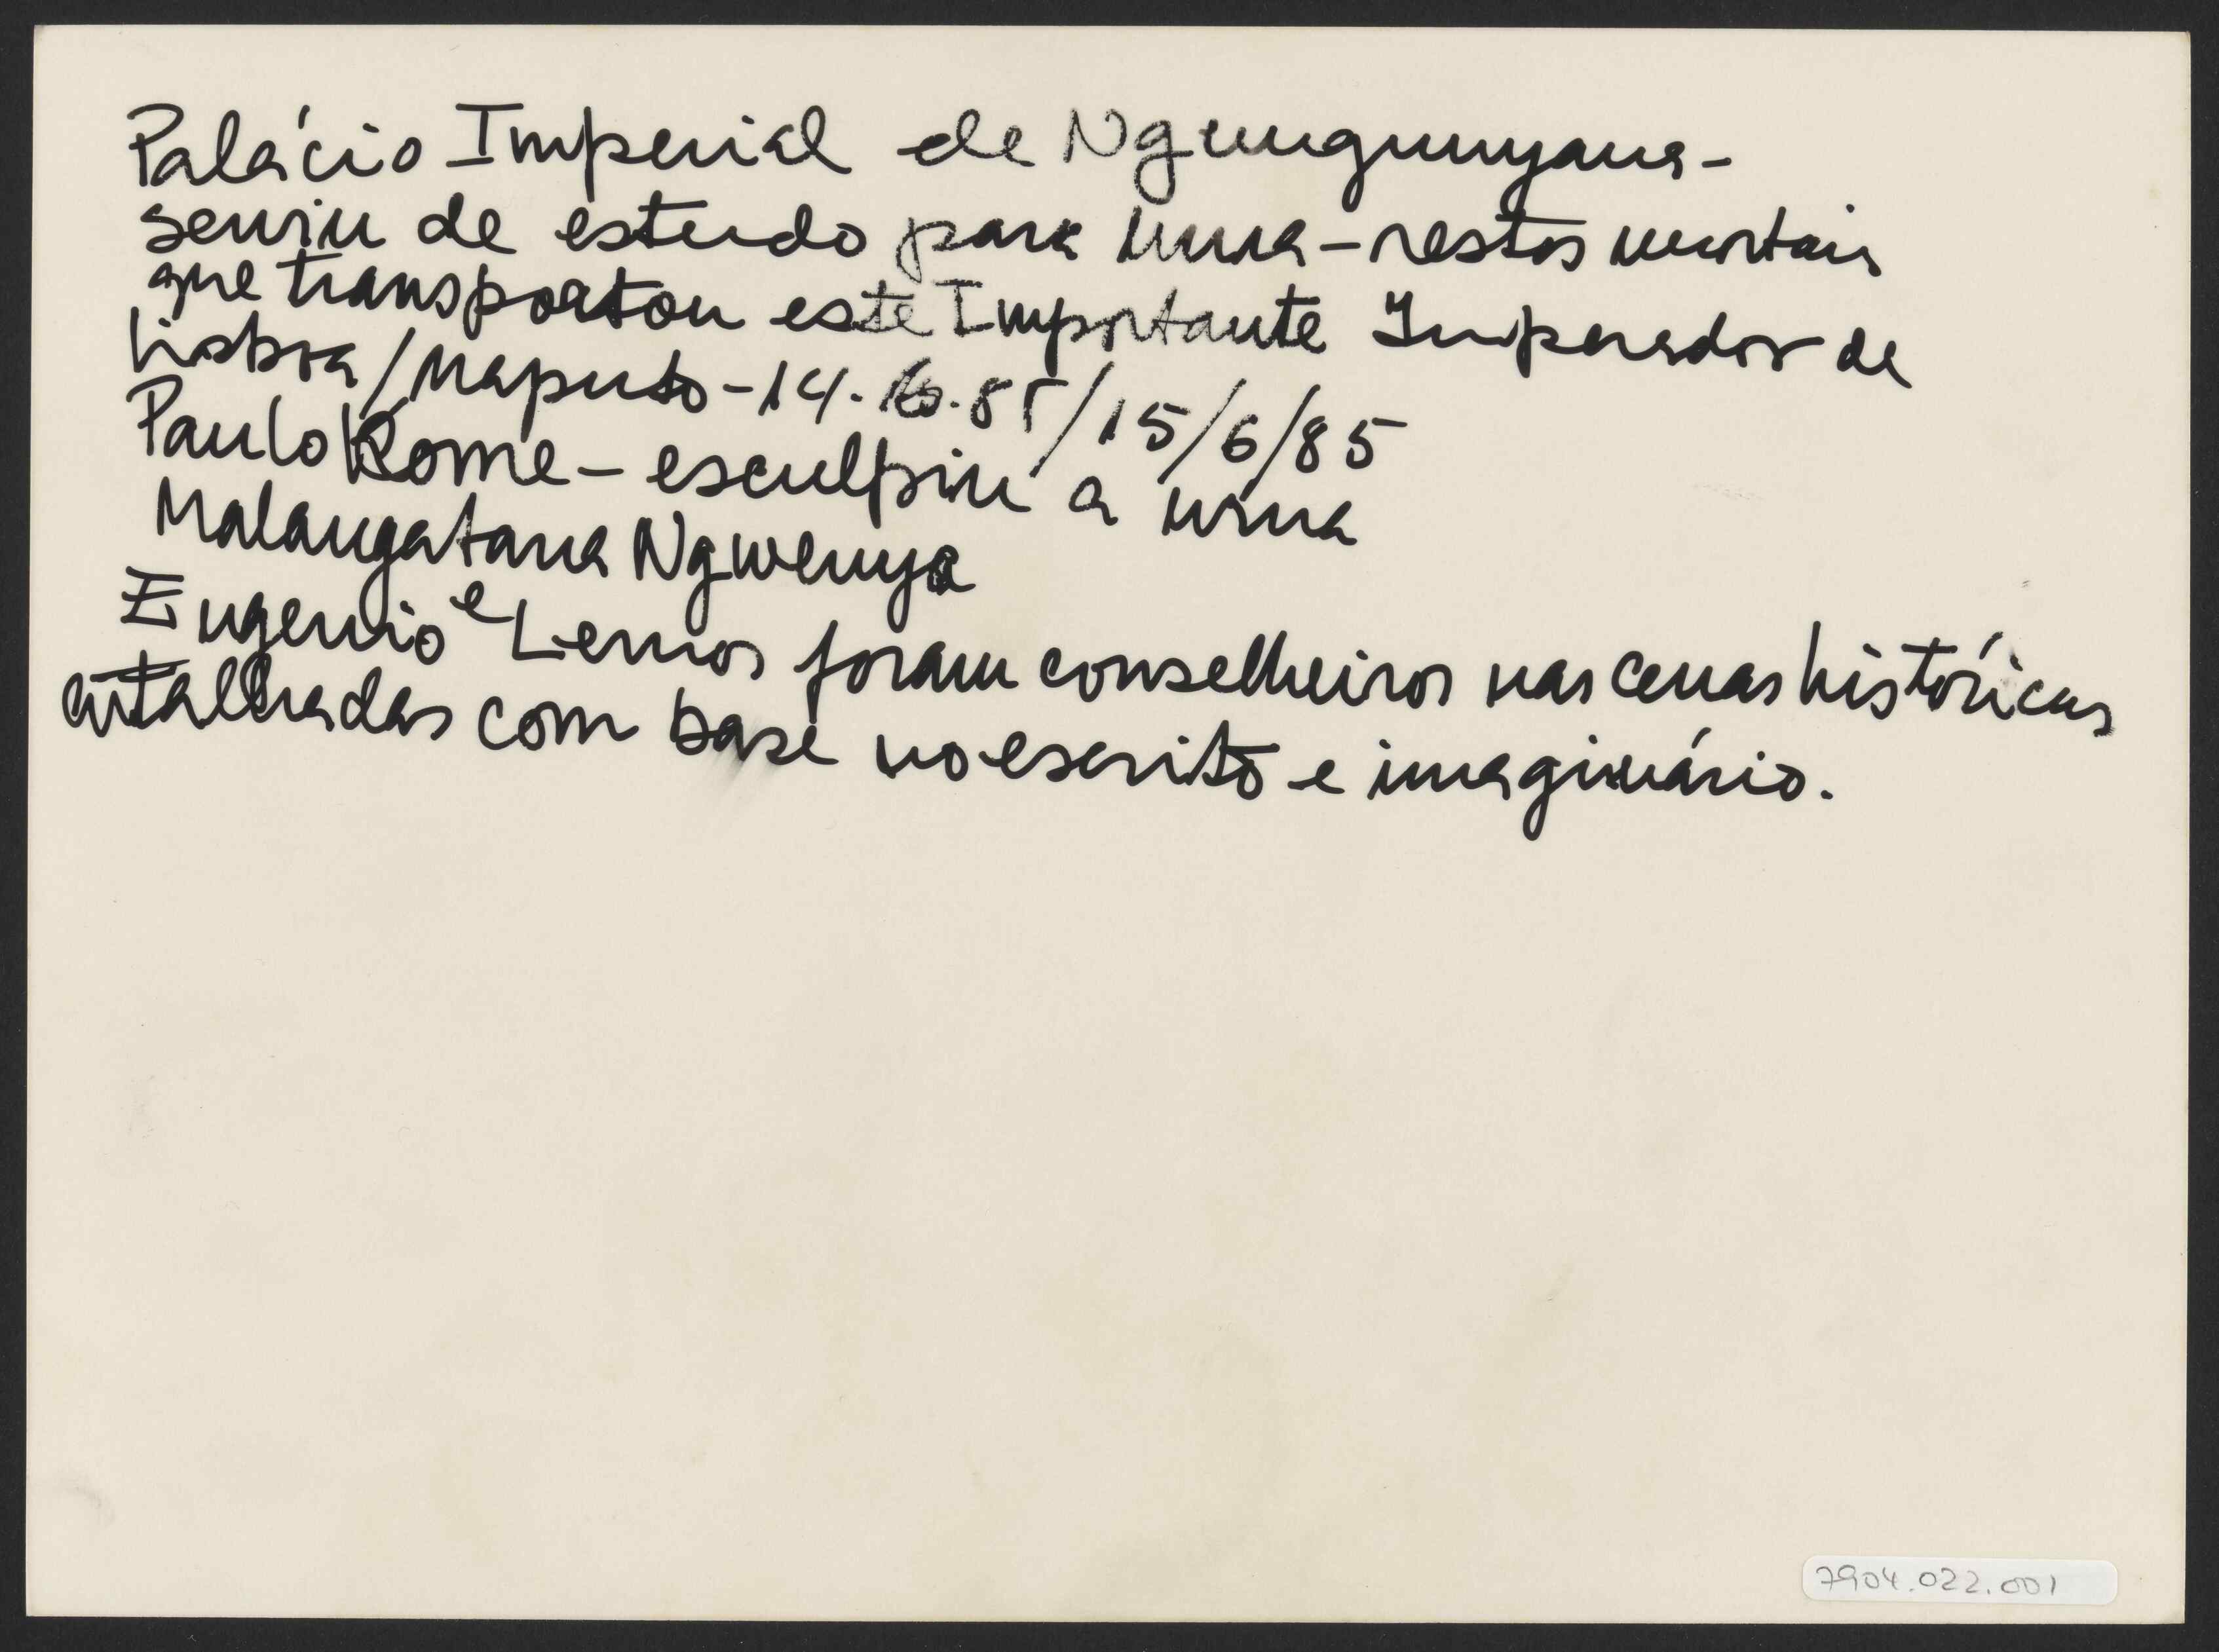 Palácio Imperial de Ngungunyana-
serviu de estudo para urna-restos mortais
que transportou este Importante Imperador de
Lisboa/Maputo-14.6.85/15/6/85
Paulo Kome- esculpiu a urna
Malangatana Ngwenya
Eugenio e Lemos foram conselheiros nas cenas históricas
entalhadas com base no escrito e imaginário.
7904.022.001